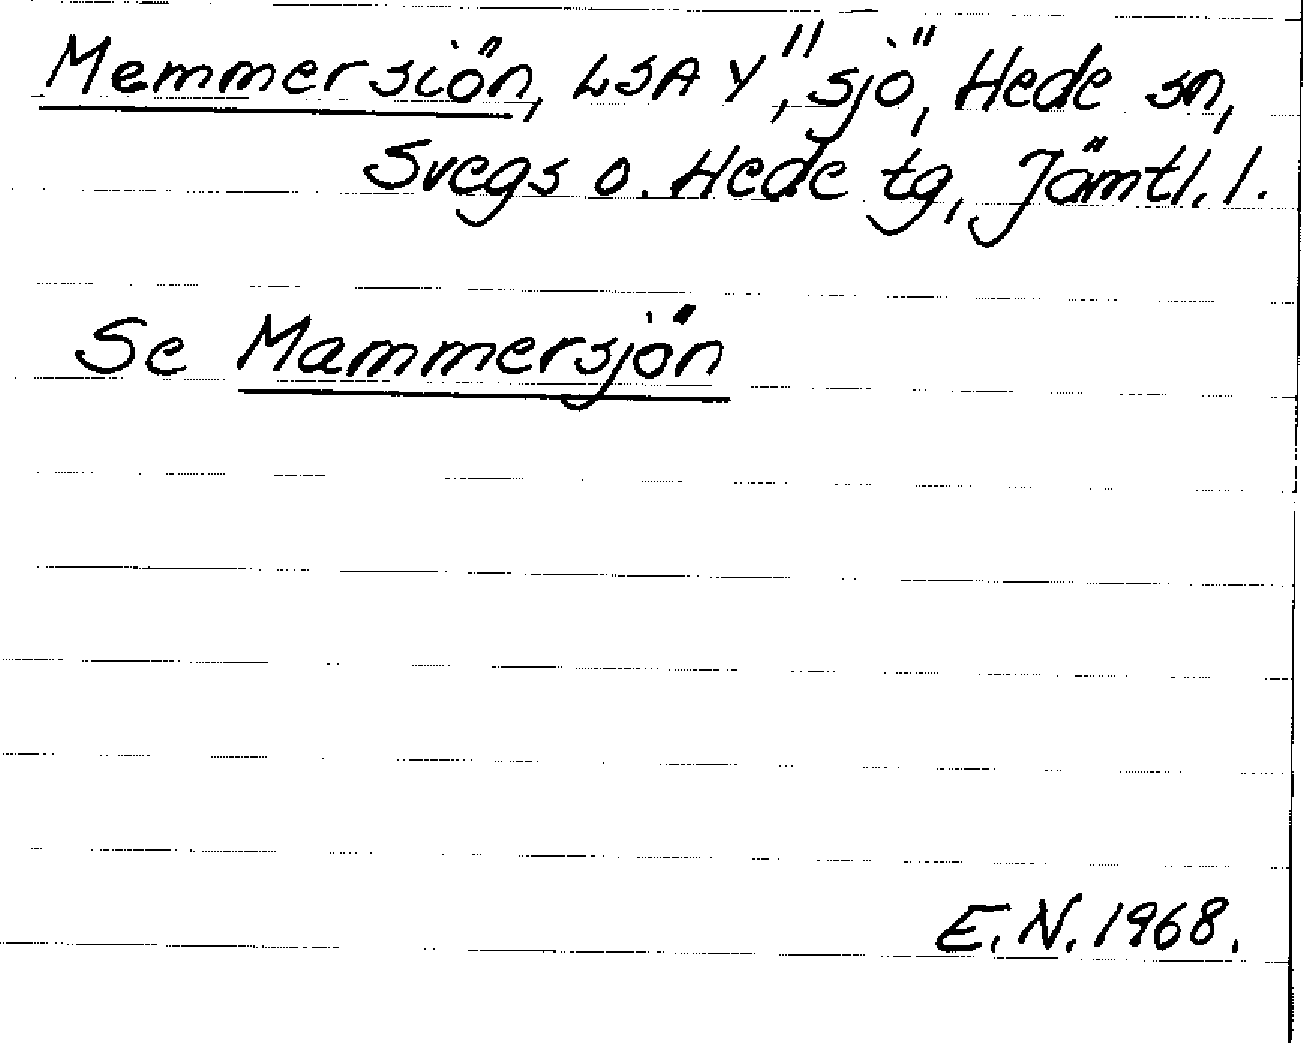 Memmersiön, LSA Y", sjö, Hede sn,
Svegs o. Hede tg, Jämtl. l.
Se Mammersjön
E.N. 1968.